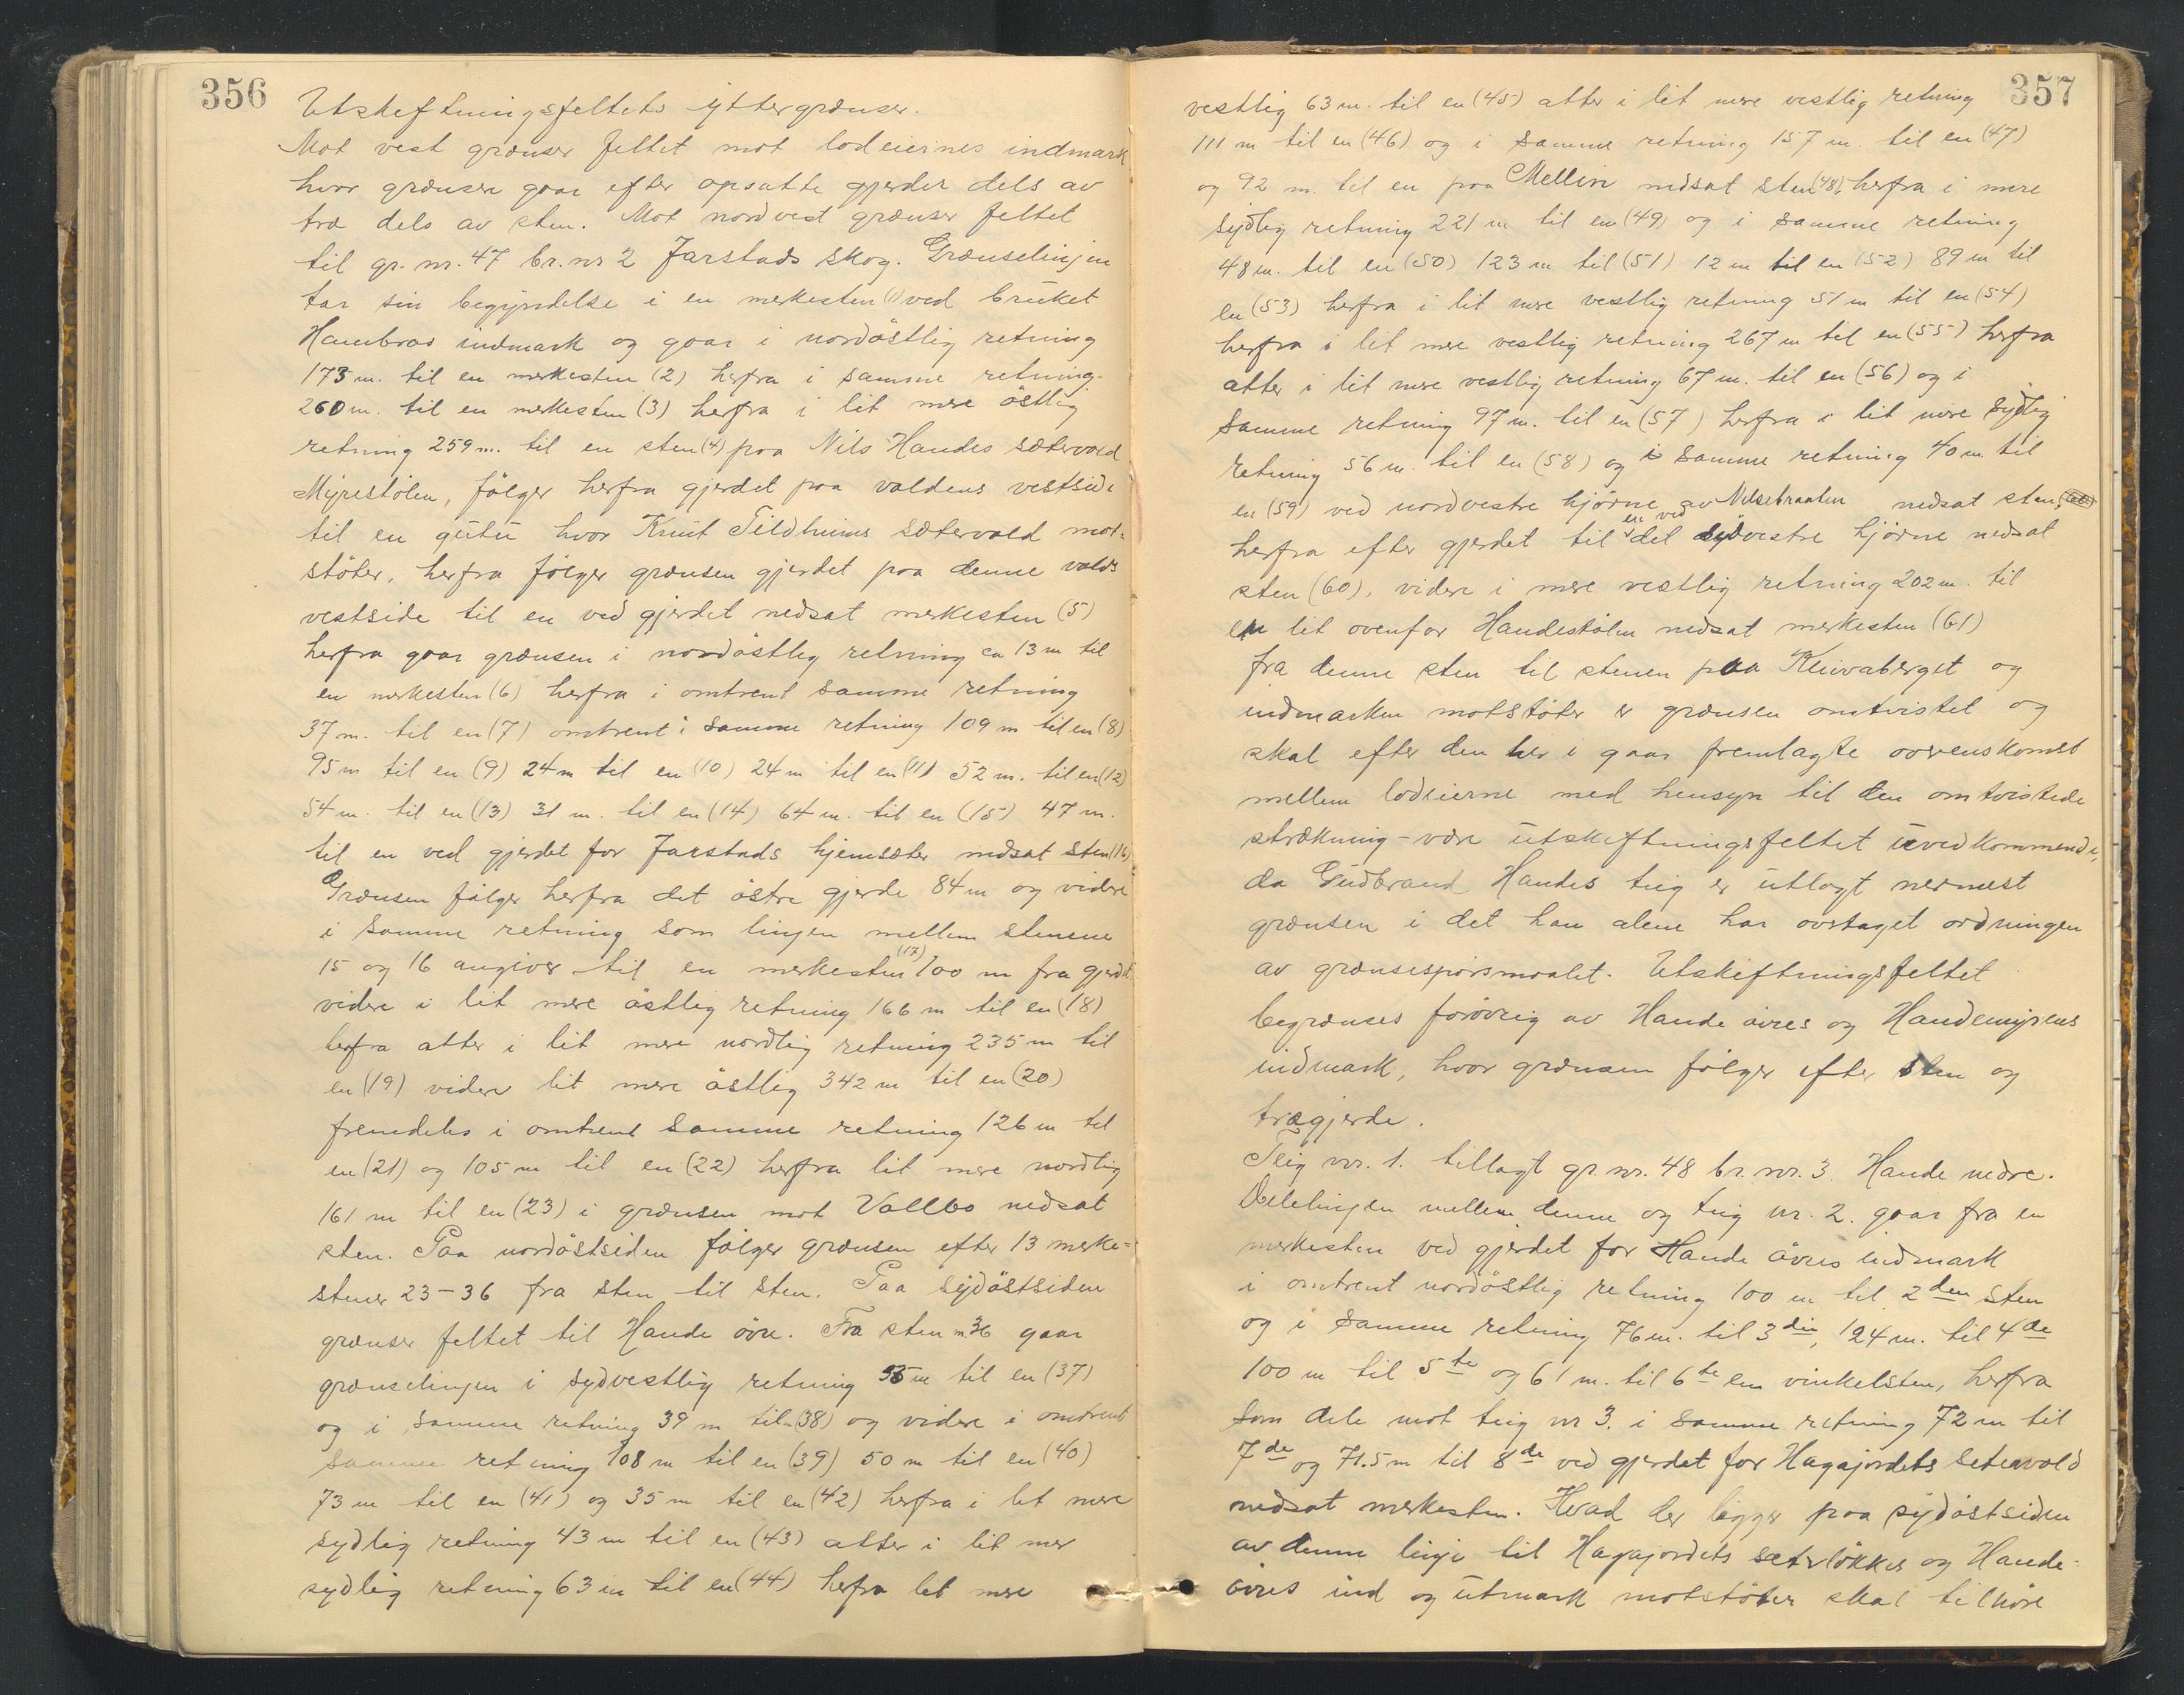 356
Utskeftningsfeltets yttergrænser.
Mot vest grænser feltet mot lodeiernes indmark
hvor grænsen gaar efter opsatte gjerder dels av
træ dels av sten. Mot nordvest grænser feltet
til gr. nr. 47 br. nr 2 Jarstads skog. Grænselinjen
tar sin begyndelse i en merkesten (1) ved bruket
Haubros indmark og gaar i nordöstlig retning
173 m. til en merkesten (2) herfra i samme retning
260 m. til en merkesten (3) herfra i lit mere östlig
retning 259 m. til en sten (4) paa Nils Handes sætervold
Myrestölen, fölger herfra gjerdet paa voldens vestside
til en gutu hvor Knut Tildheims sætervold mot-
stöter, herfra fölger grænsen gjerdet paa denne volds
vestside til en ved gjerdet nedsat merkesten (5)
herfra gaar grænsen i nordöstlig retning ca 13 m til
en merkesten (6) herfra i omtrent samme retning
37 m. til en (7) omtrent i samme retning 109 m til en (8)
95 m til en (9) 24 m til en (10) 24 m til en (11) 52 m. til en (12)
54 m. til en (13) 31 m. til en (14) 64 m. til en (15) 47 m.
til en ved gjerdet for Jarstads hjemsæter nedsat sten (16)
Grænsen fölger herfra det östre gjerde 84 m og videre
i samme retning som linjen mellem stenene
15 og 16 angiver til en merkesten (17) 100 m fra gjerdet
videre i lit mere östlig retning 166 m til en (18)
herfra atter i lit mere nordlig retning 235 m til
en (19) videre lit mere östlig 342 m til en (20)
fremdeles i omtrent samme retning 126 m til
en (21) og 105 m til en (22) herfra lit mere nordlig
161 m til en (23) i grænsen mot Vallbo nedsat
sten. Paa nordöstsiden fölger grænsen efter 13 merke-
stener 23-36 fra sten til sten. Paa sydöstsiden
grænser feltet til Hande övre. Fra sten n. 36 gaar
grænselinjen i sydvestlig retning m til en (37)
og i samme retning 39 m til (38) og videre i omtrent
samme retning 108 m til en (39) 50 m til en (40)
73 m til en (41) og 35 m til en (42) herfra i lit mere
sydlig retning 43 m til en (43) atter i lit mer
sydlig retning 63 m til en (44) herfra lit mere
357
vestlig 63 m. til en (45) atter i lit mere vestlig retning
111 m til en (46) og i samme retning 157 m. til en (47)
og 92 m. til en paa Mellin nedsat sten (48), herfra i mere
sydlig retning 221 m til en (49) og i samme retning
48 m. til en (50) 123 m til (51) 12 m til en (52) 89 m til
en (53) herfra i lit mere vestlig retning 51 m til en (54)
herfra i lit mere vestlig retning 267 m til en (55) herfra
atter i lit mere vestlig retning 67 m. til en (56) og i
samme retning 97 m. til en (57) herfra i lit mere sydlig
retning 56 m. til en (58) og i samme retning 40 m til
en (59) ved nordvestre hjörne av Nilsebraaten nedsat sten,
herfra efter gjerdet til en ved det sydvestre hjörne nedsat
sten (60), videre i mere vestlig retning 202 m. til
en lit ovenfor Handestölen nedsat merkesten (61)
fra denne sten til stenen paa Kleivaberget og
indmarken motstöter er grænsen omtvistet og
skal efter den her i gaar fremlagte overenskomst
mellem lodeierne med hensyn til den omtvistede
strækning - være utskeftningsfeltet uvedkommende,
da Gudbrand Handes teig er utlagt nærmest
grænsen i det han alene har overtaget ordningen
av grænsespörsmaalet. Utskeftningsfeltet
begrænses forövrig av Hande övres og Handemyrens
indmark, hvor grænsen fölger efter sten og
trægjerde.
Teig nr. 1. tillagt gr. nr. 48 br. nr. 3. Hande nedre.
Delelinjen mellem denne og teig nr. 2. gaar fra en
merkesten ved gjerdet for Hande övres indmark
i omtrent nordöstlig retning 100 m til 2den sten
og i samme retning 76 m. til 3die, 124 m. til 4de
100 m til 5te og 61 m. til 6te en vinkelsten, herfra
som dele mot teig nr 3. i samme retning 72 m til
7de og 71.5 m til 8de ved gjerdet for Hagajordets setervold
nedsat merkesten. Hvad der ligger paa sydöstsiden
av denne linje til Hagajordets sæterlökker og Hande-
övres ind og utmark motstöter skal tilhöre